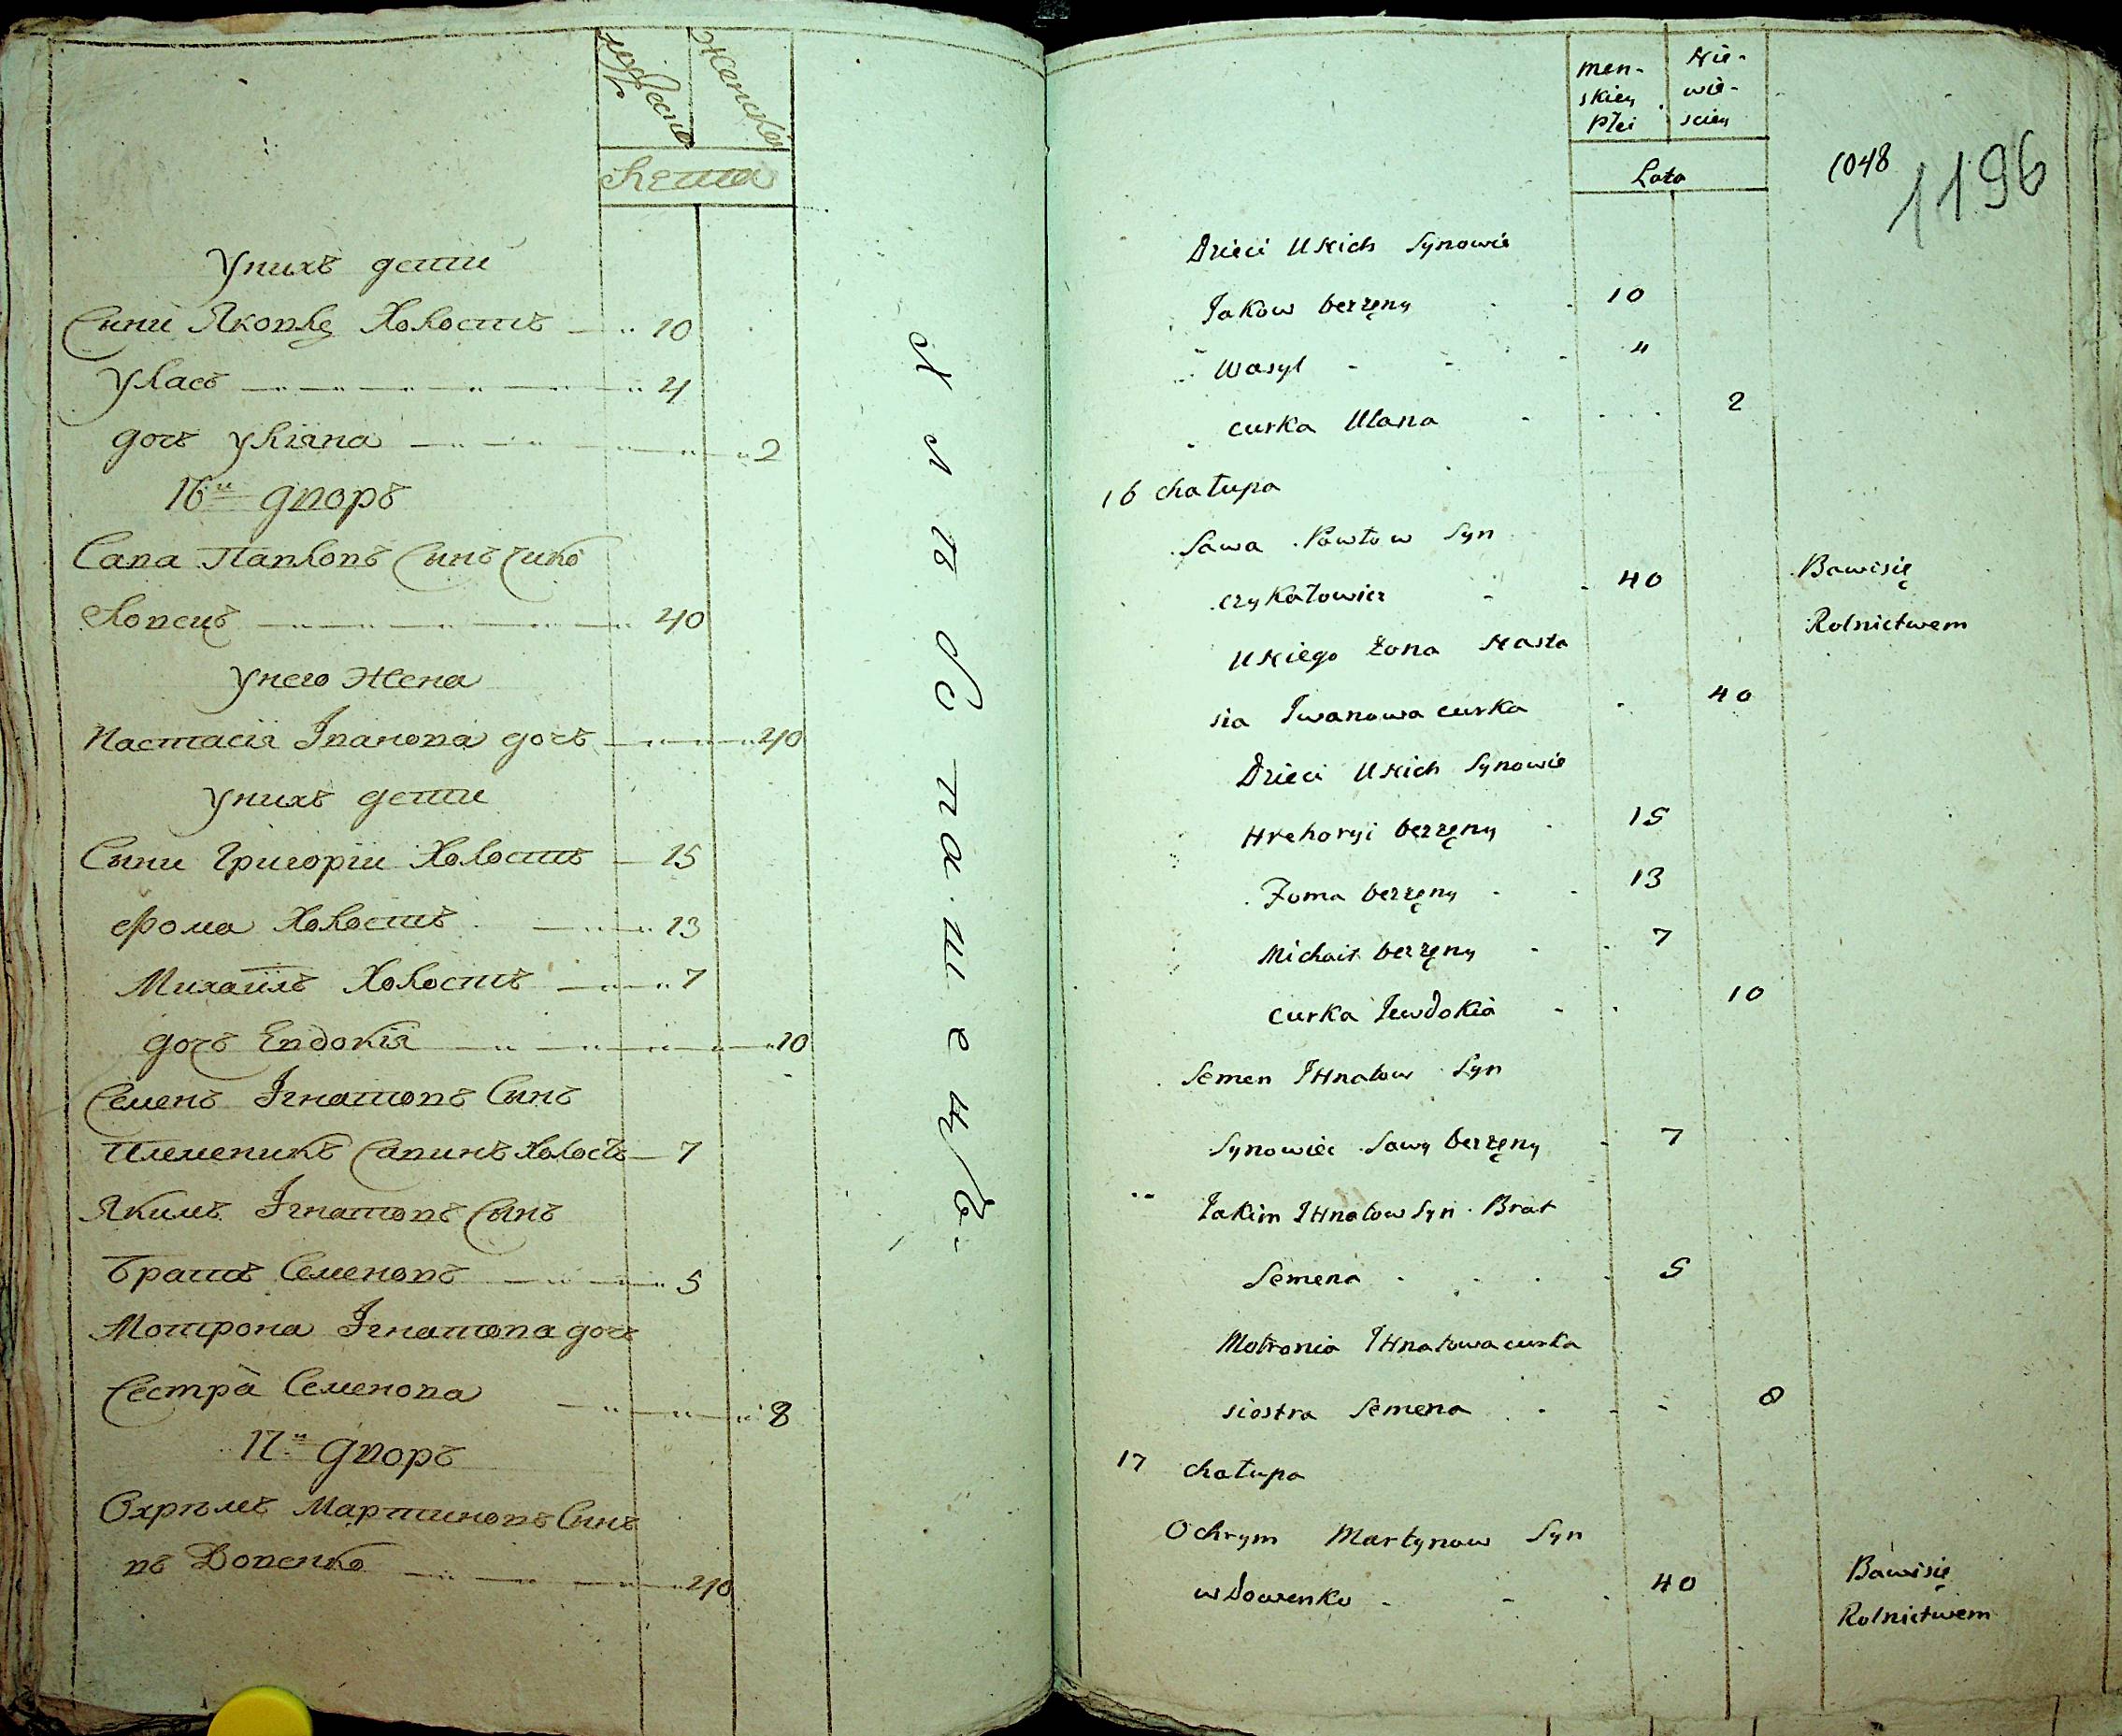 Мужеска Женска
Лета
Унихъ дети
Сини Яковъ Холостъ 10
Уласъ 4
дочъ Уліяна 2
16й дворъ
Сава Павловъ Синъ Чико
ловецъ 40
Унего Жена
Настасія Іванова дочъ 40
Унихъ дети
Сыни Григоріи Холостъ 15
Фома Холостъ 13
Михаилъ Холостъ 7
дочъ Евдокія 10
Семенъ Ігнатовъ Синъ
Племеникъ Савинъ Холостъ 7
Якимъ Ігнатовъ Сынъ
Братъ Семеновъ 5
Мотрона Ігнатова дочъ
Сестра Семенова 8
17й дворъ
Охрѣмъ Мартиновъ Синъ
въ Довенко 40
men- Nie-
skiey wie-
Płci sciey
Lata
1048
1196
Dzieci U Nich Synowie
Jakow bezżęny 10
Wasyl 4
curka Ulana 2
16 chałupa
Sawa Pawłow Syn
czykałowicz 40 Bawi się
U Niego Żona Nasta Rolnictwem
sia Iwanowa curka 40
Dzieci U Nich Synowie
Hrehoryi bezżęny 15
Foma bezżęny 13
Michaił bezżęny 7
curka Jewdokia 10
Semen IHnatow Syn
Synowiec Sawy bezżęny 7
Jakim IHnatow Syn Brat
Semena 5
Motronia IHnatowa curka
siostra Semena 8
17 chałupa
Ochrym Martynow Syn
wdowenko 40 Bawi się
Rolnictwem